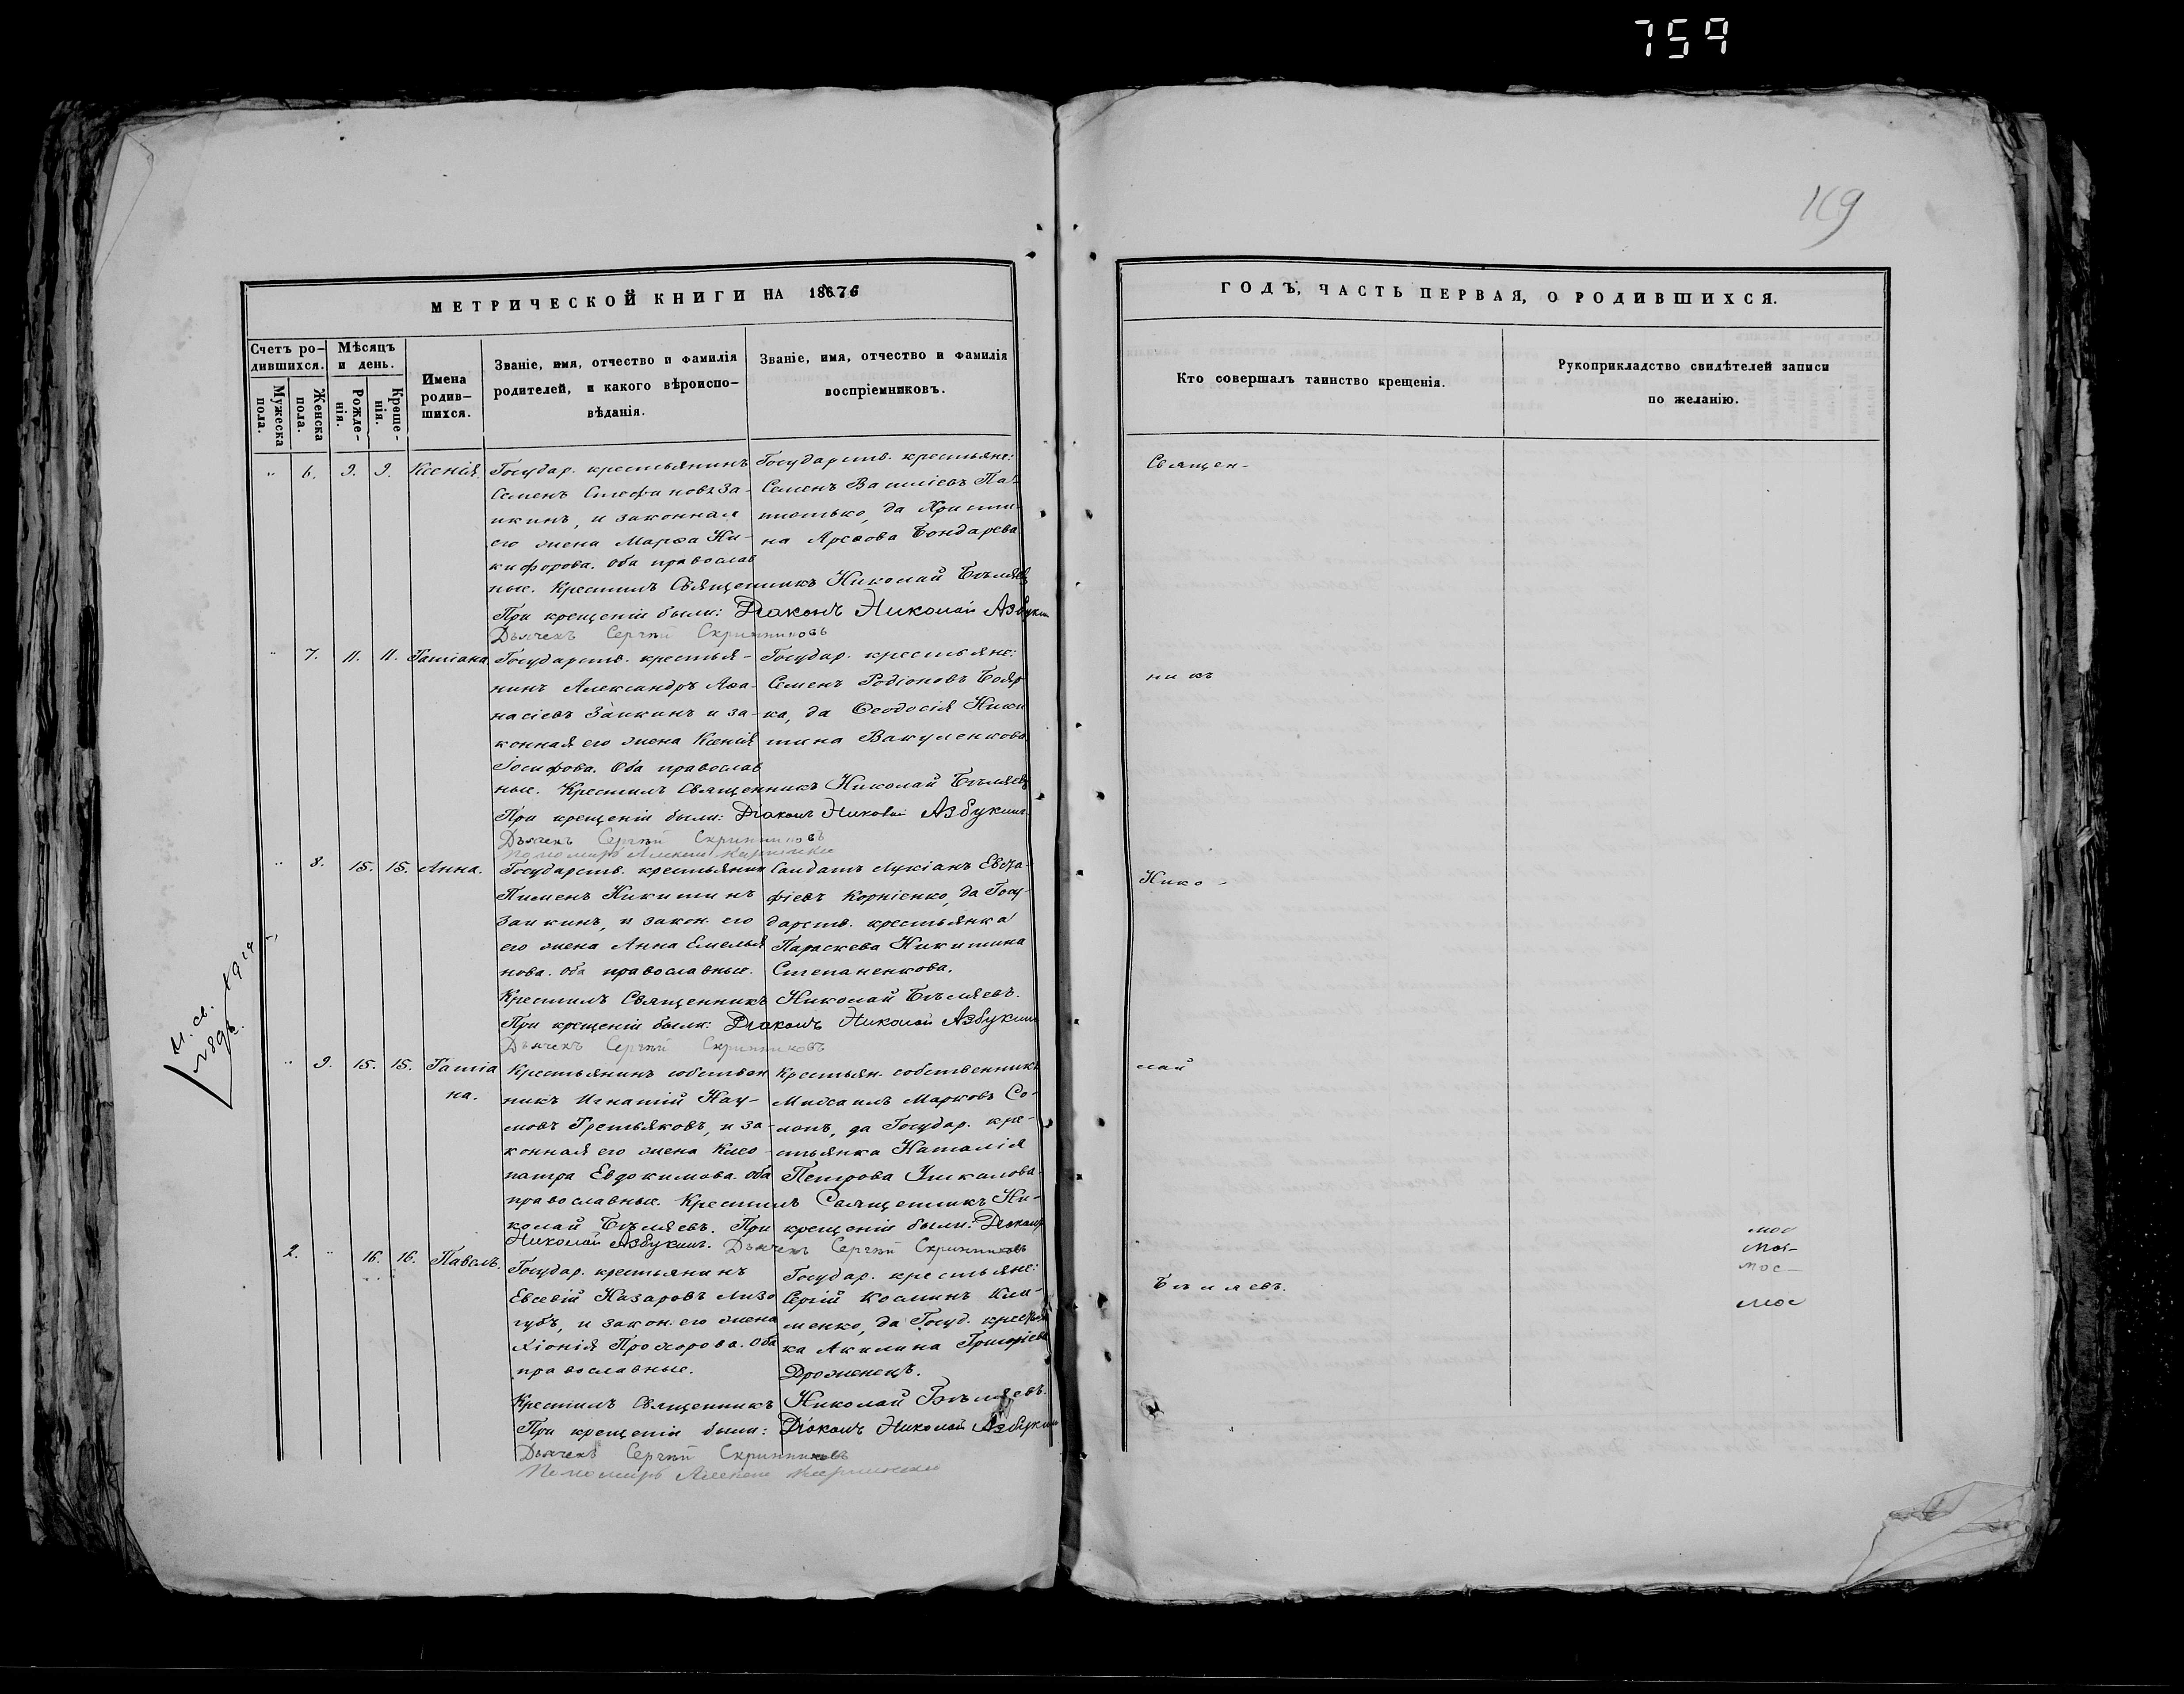 759
169
МЕТРИЧЕСКОЙ КНИГИ НА 1876
ГОДЪ, ЧАСТЬ ПЕРВАЯ, О РОДИВШИХСЯ.
Счетъ ро-
дившихся.
Мужеска
пола.
Женска
пола.
Мѣсяцъ
и день.
Рожде-
нія.
Креще-
нія.
Имена
родив-
шихся.
Званіе, имя, отчество и фамилія
родителей, и какого вѣроиспо-
вѣданія.
Званіе, имя, отчество и фамилія
воспріемниковъ.
Кто совершалъ таинство крещенія.
Рукоприкладство свидѣтелей записи
по желанію.
" 6. 9. 9. Ксенія.
Государ. крестьянинъ
Семенъ Стефановъ За-
икинъ, и законная
его жена Марѳа Ни-
кифорова. Оба православ
Государств. крестьяне:
Семенъ Василіевъ
да Христи-
на Бондарева
ные. Крестилъ Священникъ Николай Бѣляевъ
При крещеніи были: Діаконъ Николай Азбукинъ
Дьячекъ Сергѣй Скрипниковъ
Священ-
" 7. 11. 11. Татіана.
Государств. крестья-
нинъ Александръ Аѳа-
насіевъ Заикинъ и за-
конная его жена Ксенія
Іосифова. Оба православ
Государ. крестьяне:
Семенъ Родіоновъ Бояр
ка, да Ѳеодосія Ники
тина Вакуленкова.
ные. Крестилъ Священникъ Николай Бѣляевъ
При крещеніи были: Діаконъ Николай Азбукинъ
Дьячекъ Сергѣй Скрипниковъ
Пономарь Алексѣй
никъ
" 8. 15. 15. Анна.
Государств. крестьянин
Пименъ Никитинъ
Заикинъ, и закон. его
его жена Анна Емелья
нова. Оба православные.
Солдатъ Лукіанъ Евста-
фіевъ Корніенко, да Госу-
дарств. крестьянка
Параскева Никитина
Степаненкова.
Крестилъ Священникъ Николай Бѣляевъ.
При крещеніи были: Діаконъ Николай Азбукинъ
Дьячекъ Сергѣй Скрипниковъ
Нико-
" 9. 15. 15. Татіа
на.
Крестьянинъ собствен
никъ Игнатій Нау-
мовъ Третьяковъ, и за-
конная его жена Клео-
патра Евдокимова. Оба
Крестьян. собственникъ
Михаилъ Марковъ Со-
да Государ. кре-
стьянка Наталія
Петрова Чикалова.
православные. Крестилъ Священникъ Ни-
колай Бѣляевъ. При крещеніи были: Діаконъ
Николай Азбукинъ. Дьячекъ Сергѣй Скрипниковъ
лай
2. " 16. 16. Павелъ.
Государ. крестьянинъ
Евсевій Назаровъ Лизо
губъ, и закон. его жена
Хіонія Прохорова. Оба
православные.
Государ. крестьяне:
Сергій Косминъ Кли-
менко, да Госуд. крестьян
ка Акилина Григоріева
Дроженецъ.
Крестилъ Священникъ Николай Бѣляевъ.
При крещеніи были: Діаконъ Николай Азбукинъ
Дьячекъ Сергѣй Скрипниковъ
Пономарь Алексѣй
Бѣляевъ.